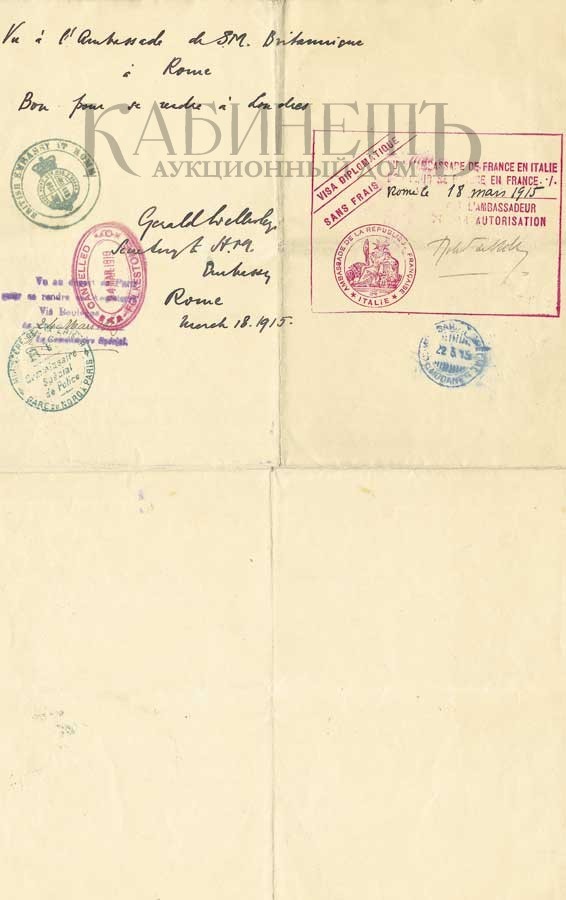 Vu à l'Ambassade de S.M. Britannique
à Rome
Bon pour se rendre à Londres
КАБИНЕТЪ
АУКЦИОННЫЙ ДОМ
BRITISH EMBASSY AT ROME
VISA DIPLOMATIQUE
SANS FRAIS
AMBASSADE DE FRANCE EN ITALIE
EN FRANCE
Rome le 18 mars 1915
L'AMBASSADEUR
AUTORISATION
AMBASSADE DE LA REPUBLIQUE FRANÇAISE
ITALIE
Gerald Wellesley
H.M.
Embassy
Rome
March 18. 1915.
CANCELLED
MAR 1919
Vu au départ de Paris
pour se rendre
Via Boulogne
Le Commissaire Spécial.
Commissaire
Spécial
de Police
GARE DU NORD A PARIS
22 3 15